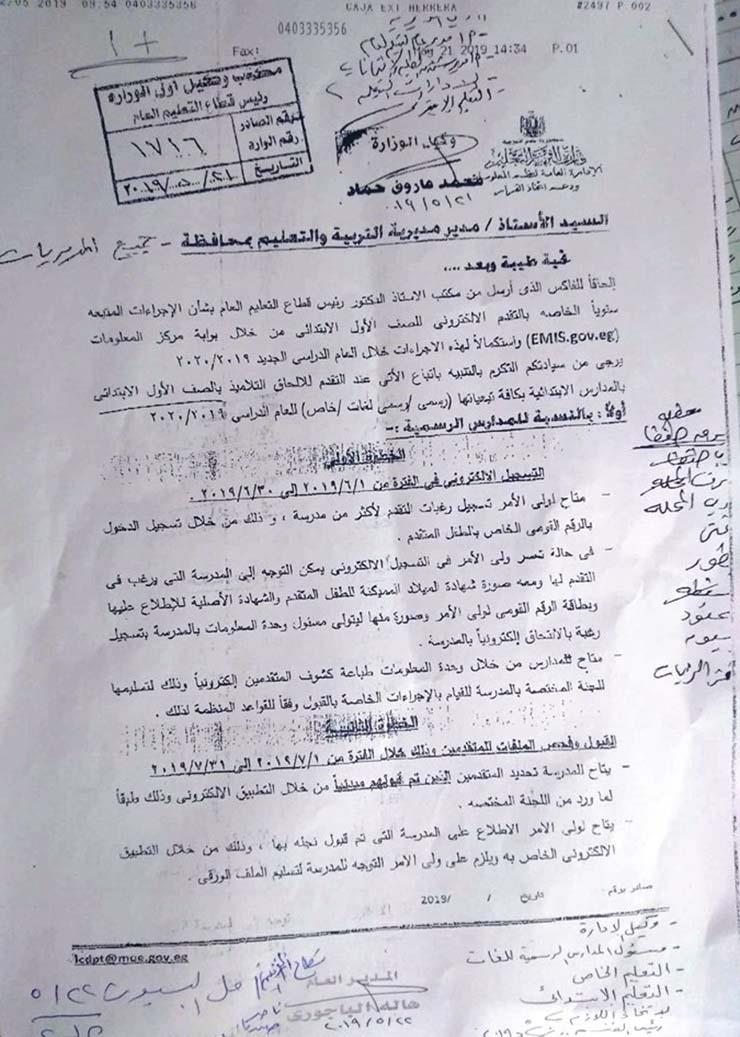 2019 09:54 0403335356
CAJA EXT HERRERA
#2497 P.002
0403335356
Fax:
21 2019 14:34
P.01
مكتب وكيل أول الوزارة
رئيس قطاع التعليم العام
رقم الصادر
رقم الوارد
١٧١٦
التاريخ
٢٠١٩/٥/٢١
وكيل الوزارة
محمد هاروق حماد
٢٠١٩/٥/٢١
الإدارة العامة لنظم المعلومات
ودعم اتخاذ القرار
السيد الأستاذ / مدير مديرية التربية والتعليم بمحافظة - جميع المديريات
تحية طيبة وبعد ....
إلحاقاً للفاكس الذى أرسل من مكتب الاستاذ الدكتور رئيس قطاع التعليم العام بشأن الإجراءات المتبعه
سنوياً الخاصه بالتقدم الالكترونى للصف الأول الابتدائى من خلال بوابة مركز المعلومات
(EMIS.gov.eg) وأستكمالاً لهذه الاجراءات خلال العام الدراسي الجديد ٢٠٢٠/٢٠١٩
يرجى من سيادتكم التكرم بالتنبيه باتباع الأتى عند التقدم للالحاق التلاميذ بالصف الأول الابتدائى
بالمدارس الابتدائية بكافة تبعياتها (رسمى /رسمى لغات /خاص) للعام الدراسى ٢٠٢٠/٢٠١٩
أولاً: بالنسبة للمدارس الرسمية :-
الخطوة الأولى
التسجيل الالكترونى فى الفترة من ٢٠١٩/٦/١ الى ٢٠١٩/٦/٣٠ .
- متاح لولى الأمر تسجيل رغبات التقدم لأكثر من مدرسة ، و ذلك من خلال تسجيل الدخول
بالرقم القومى الخاص بالطفل المتقدم .
- فى حالة تعسر ولى الأمر فى التسجيل الالكترونى يمكن التوجه إلى المدرسة التى يرغب فى
التقدم لها ومعه صورة شهادة الميلاد المميكنة للطفل المتقدم والشهادة الأصلية للإطلاع عليها
وبطاقة الرقم القومى لولى الأمر وصورة منها ليتولى مسئول وحدة المعلومات بالمدرسة بتسجيل
رغبة بالالتحاق إلكترونياً بالمدرسة .
- متاح للمدارس من خلال وحدة المعلومات طباعة كشوف المتقدمين إلكترونياً وذلك لتسليمها
للجنة المختصة بالمدرسة للقيام بالإجراءات الخاصة بالقبول وفقاً للقواعد المنظمة لذلك .
الخطوة الثانية
القبول وفحص الملفات للمتقدمين وذلك خلال الفترة من ٢٠١٩/٧/١ الى ٢٠١٩/٧/٣١
- يتاح للمدرسة تحديد المتقدمين الذين تم قبولهم مبدئياً من خلال التطبيق الالكترونى وذلك طبقاً
لما ورد من اللجنة المختصه .
- يتاح لولى الامر الاطلاع على المدرسة التى تم قبول نجله بها ، وذلك من خلال التطبيق
الالكترونى الخاص به ويلزم على ولى الامر التوجه للمدرسة لتسليم الملف الورقى .
صادر برقم
تاريخ / /2019
kdpt@moe.gov.eg
المدير العام
هالة الباجورى
٢٠١٩/٥/٢٢
- وكيل الإدارة
- مسئول المدارس الرسمية للغات
- التعليم الخاص
- التعليم الابتدائى